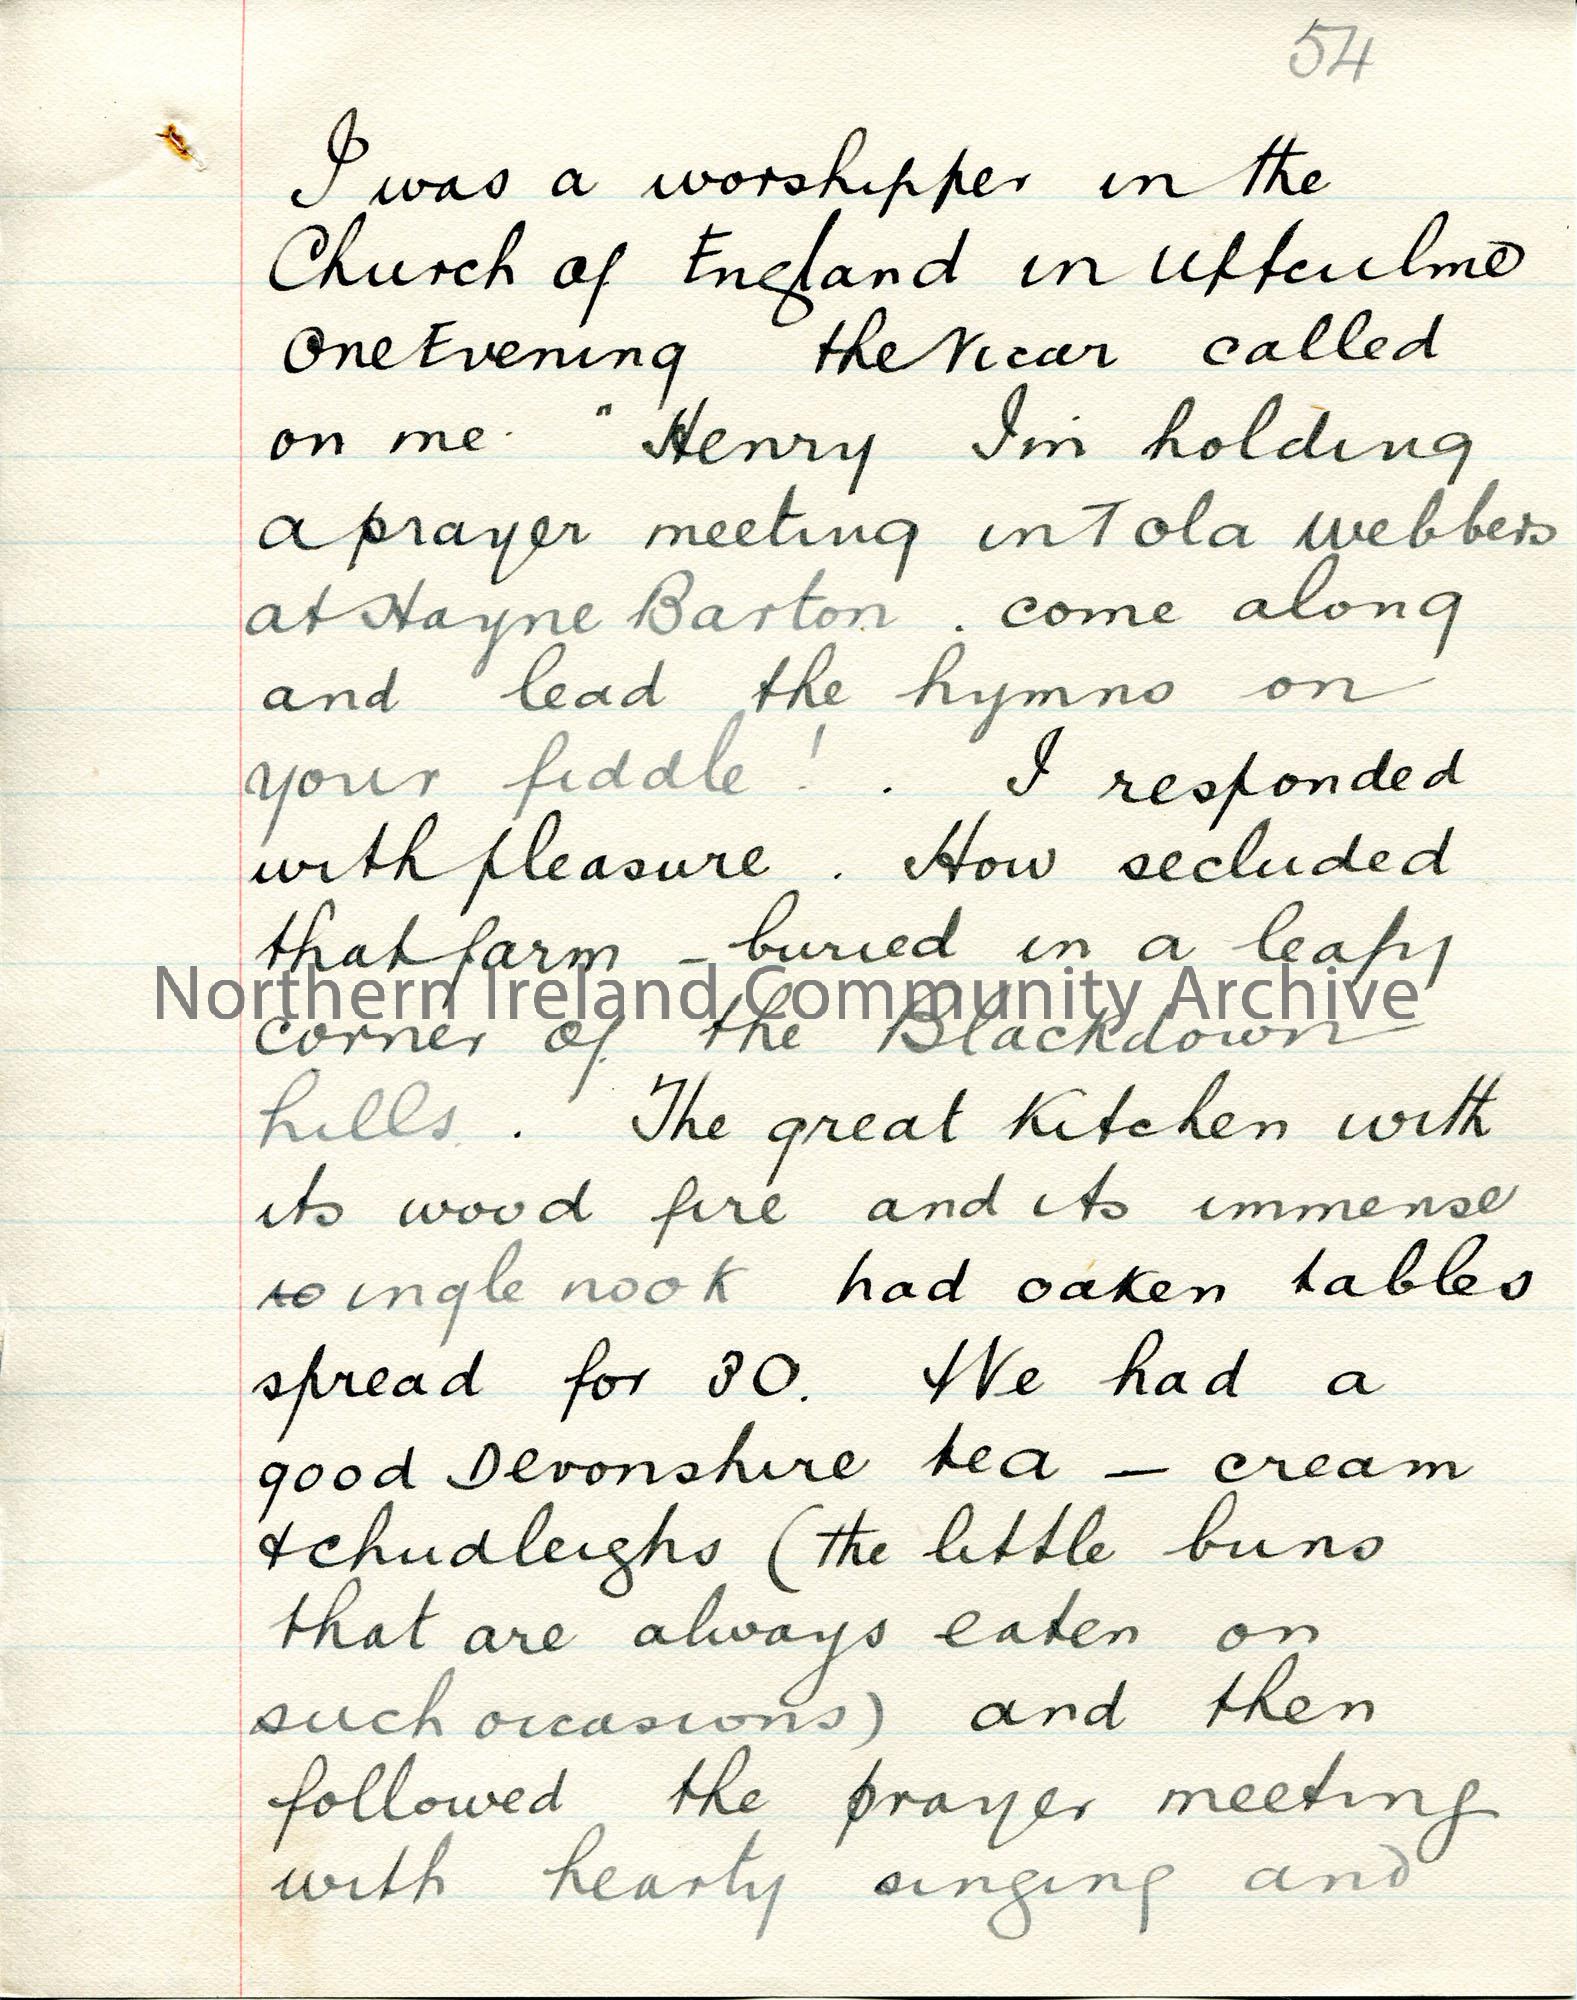 54
I was a worshipper in the
Church of England in Uffculme
One Evening the Vicar called
on me. "Henry I'm holding
a prayer meeting in Tola Webbers
at Hayne Barton. come along
and lead the hymns on
your fiddle! . I responded
with pleasure. How secluded
that farm - buried in a leafy
Northern Ireland Community Archive
corner of the Blackdown
hills. The great Kitchen with
its wood fire and its immense
to ingle nook had oaken tables
spread for 30. We had a
good Devonshire tea — cream
& chudleighs (the little buns
that are always eaten on
such occasions) and then
followed the prayer meeting
with hearty singing and